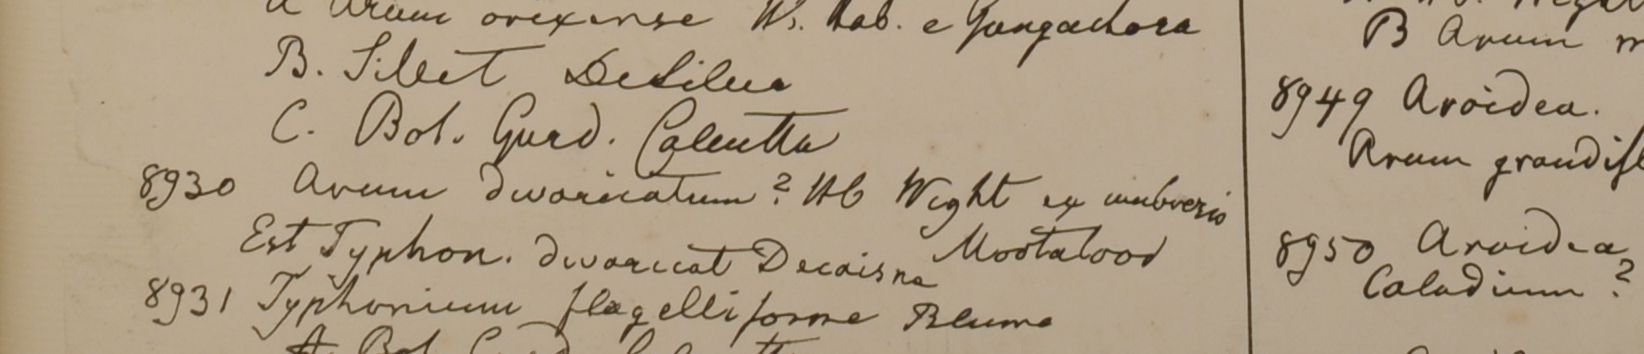 A Arum orixense W. Hab. e Gongachora
B. Sillet DeSilva
C. Bot. Gard. Calcutta
8930 Arum divaricatum? Hb Wight ex
Mootaloor
Est Typhon. divaricat Decaisne
8931 Typhonium flagelliforme Blume
A. Bot. Gard. Calcutta
B Arum
8949 Aroidea.
Arum grandifl
8950 Aroidea
Caladium?